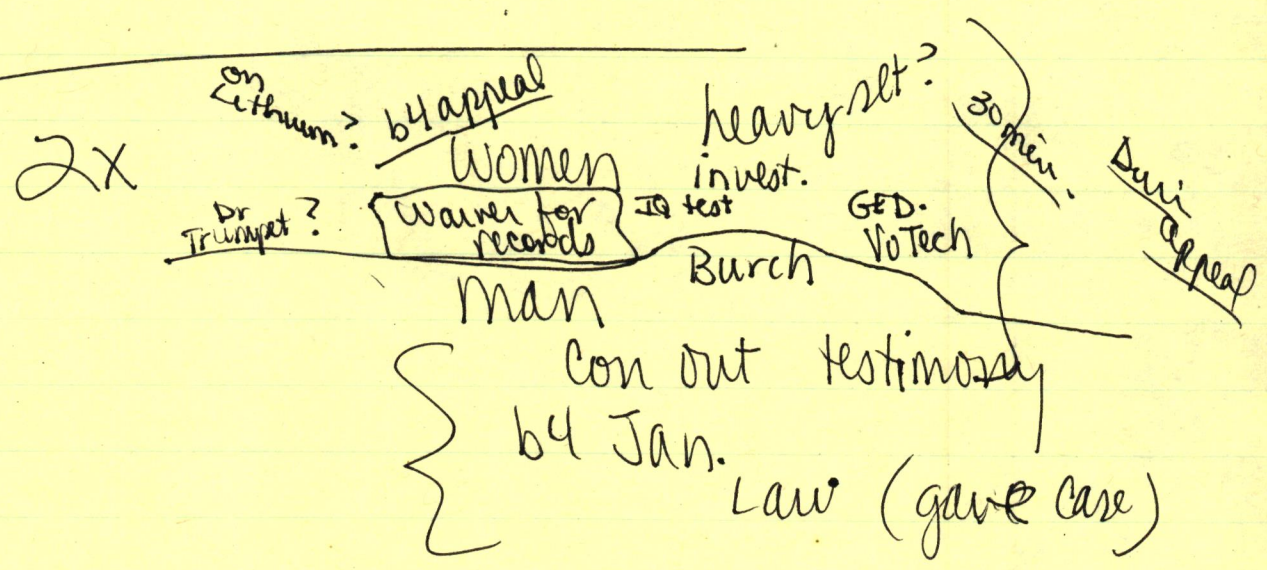 on
Lethium?
b4 appeal
heavy set?
30 min.
2x
Women
invest.
Duri
appeal
Dr
Trumpet?
Waiver for
records
IQ test
GED.
VoTech
Burch
Man
Con out testimony
b4 Jan.
Law (gave case)